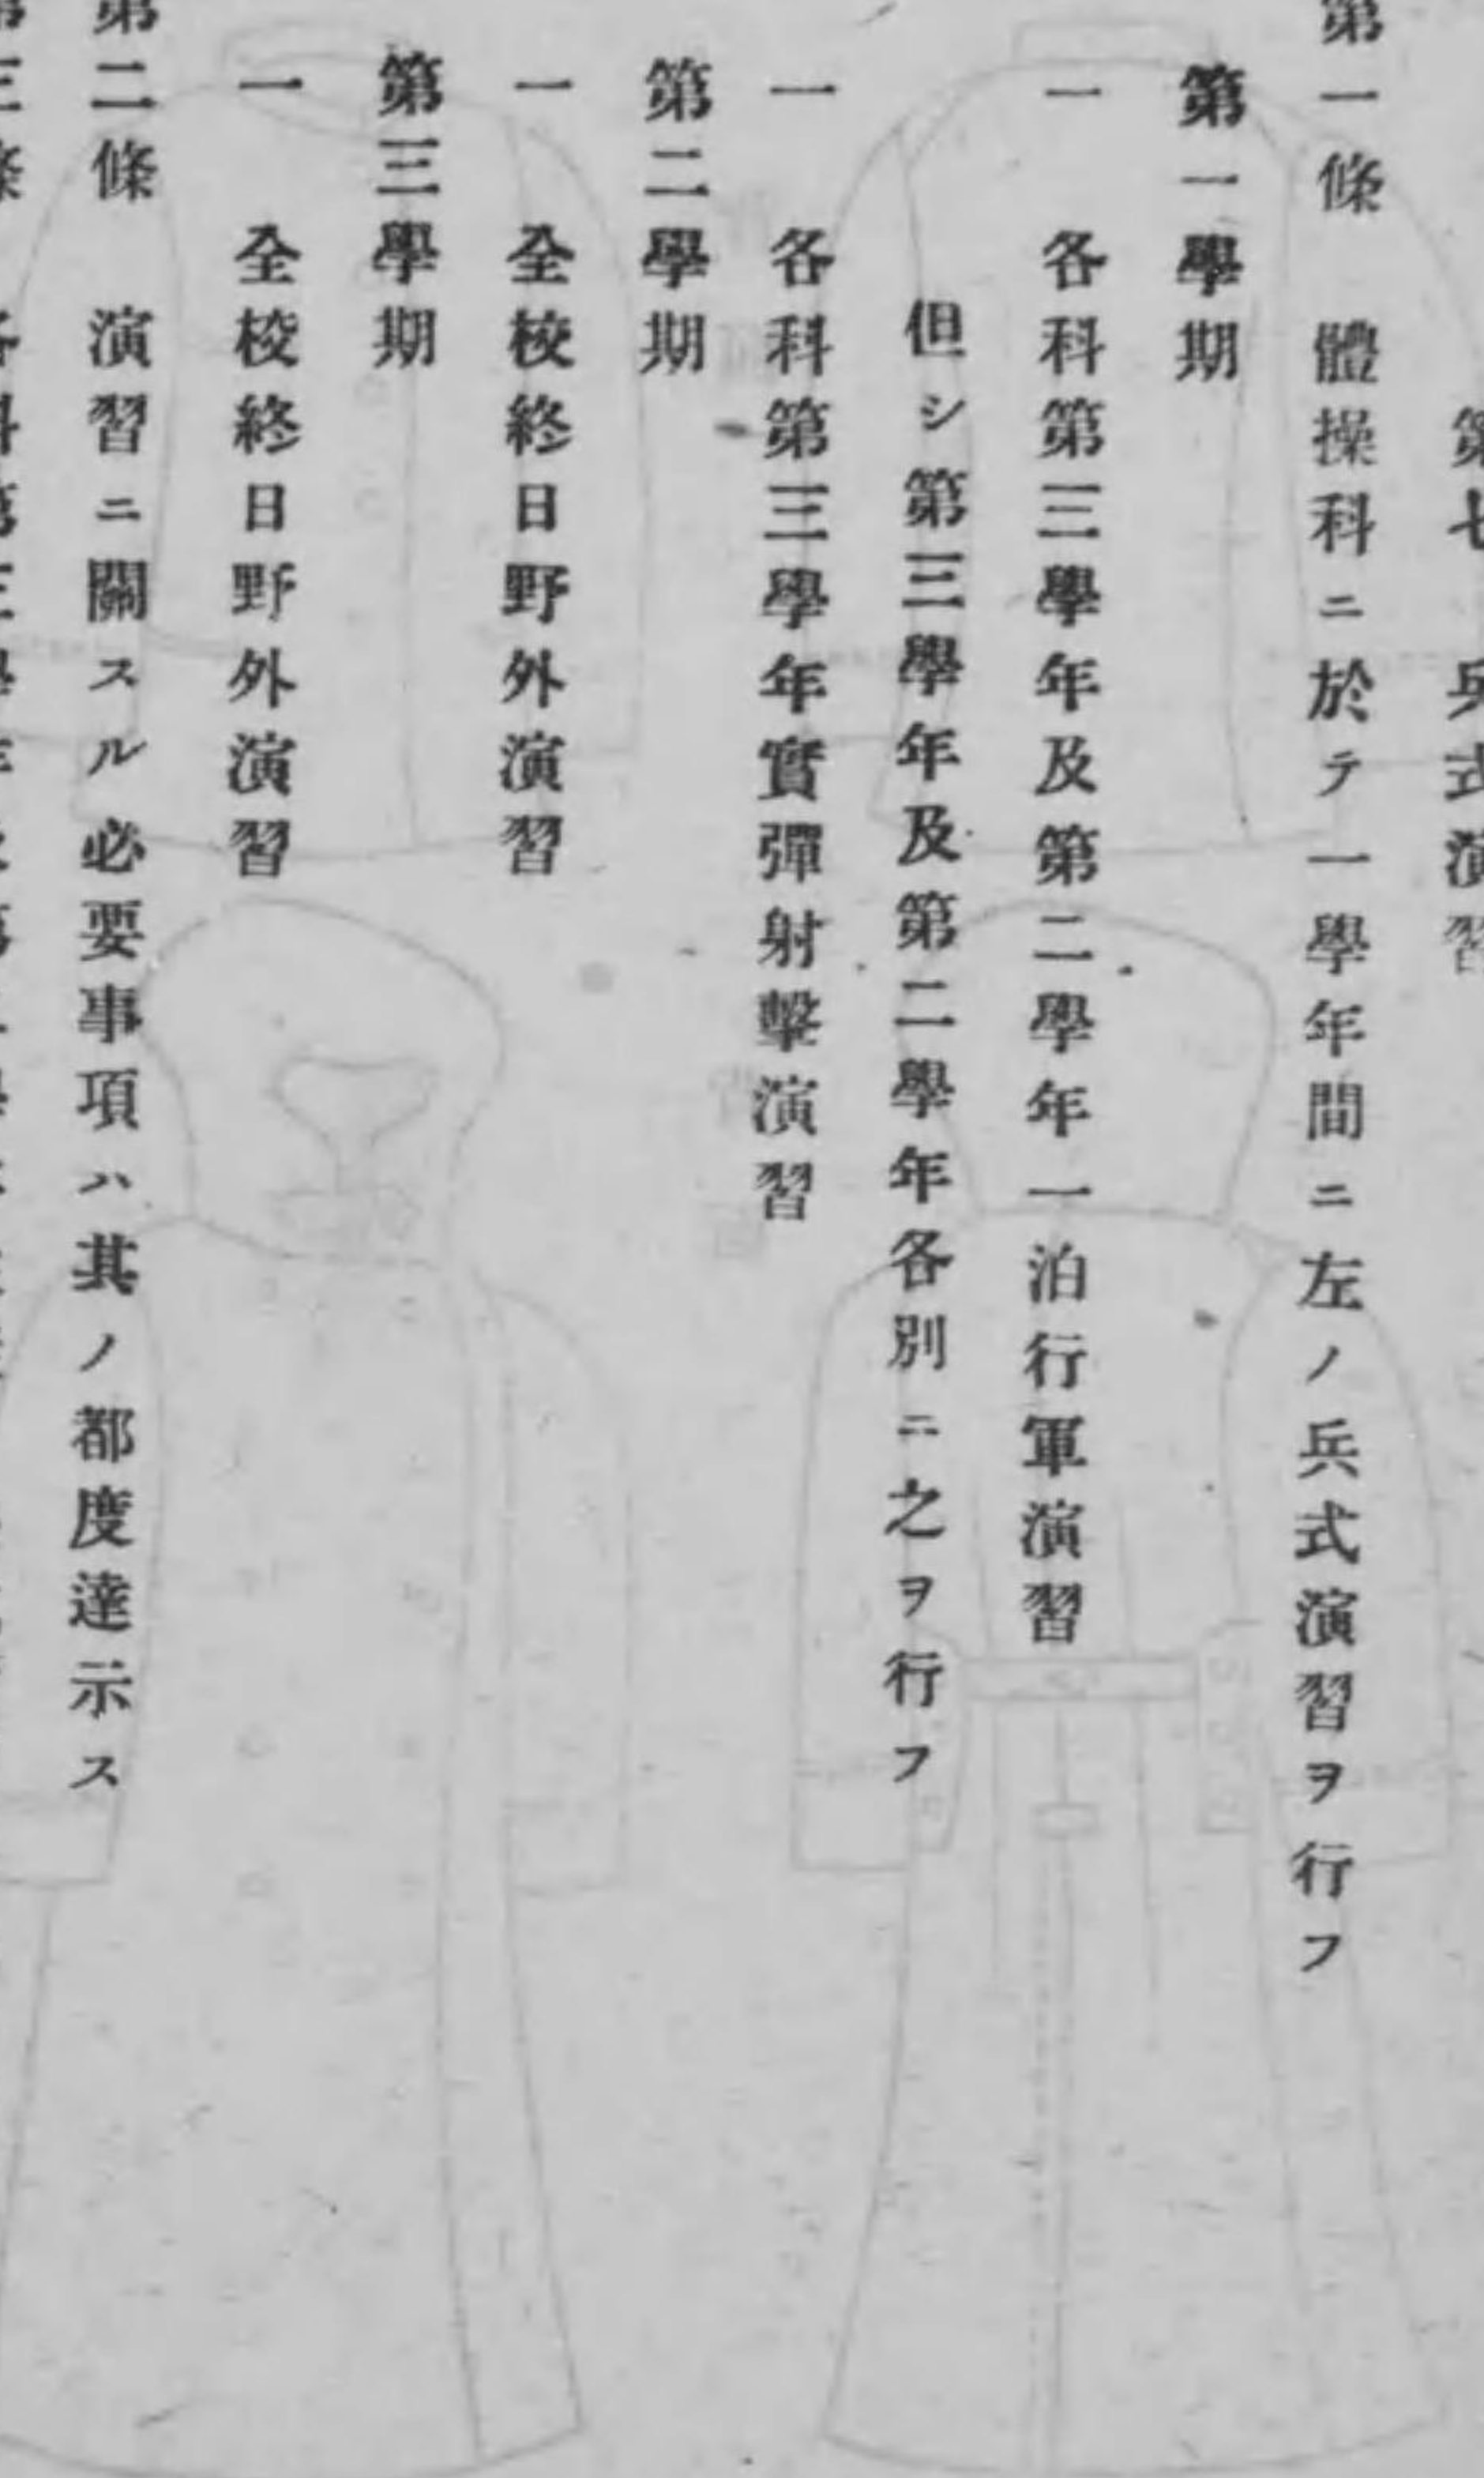 第七 兵式演習
第一條 體操科ニ於テ一學年間ニ左ノ兵式演習ヲ行フ
第一學期
一 各科第三學年及第二學年一泊行軍演習
但シ第三學年及第二學年各別ニ之ヲ行フ
一 各科第三學年實彈射擊演習
第二學期
一 全校終日野外演習
第三學期
一 全校終日野外演習
第二條 演習ニ關スル必要事項ハ其ノ都度達示ス